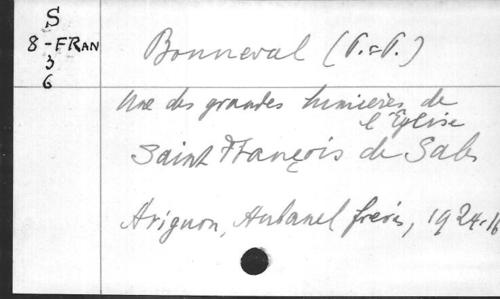 S
8-FRAN
3
6
Bonneval (P.=P.)
Une des grandes lumières de
l'Eglise
Saint François de Sales
Avignon, Aubanel frères, 1924.-16